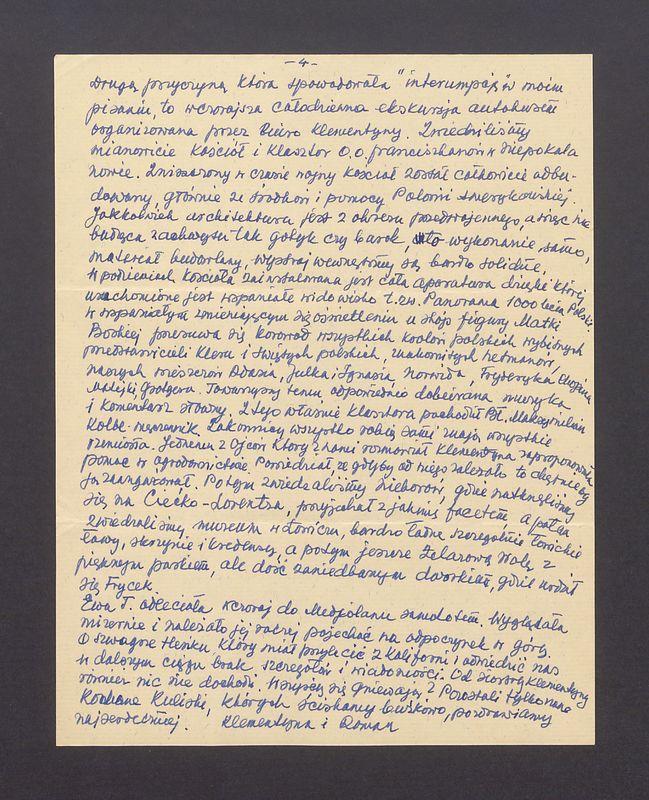 - 4 -
Drugą przyczyną która spowodowała "interumpcję" w moim
pisaniu, to wczorajsza całodzienna ekskursja autokarem
organizowana przez biuro Klementyny. Zwiedziliśmy
mianowicie Kościół i Klasztor O.O. Franciszkanów w Niepokala
nowie. Zniszczony w czasie wojny Kościół został całkowicie odbu-
dowany, głównie ze środków i pomocy Polonii Amerykańskiej
Jakkolwiek architektura jest z okresu przedwojennego, a więc nie
budząca zachwytu tak gotyk czy barok, to wykonanie samo,
materiał budowlany, wystrój wewnętrzny są bardzo solidne.
W podziemiach Kościoła zainstalowana jest cała aparatura dzięki której
uruchomione jest wspaniałe widowisko t.zw. Panorama 1000 lecia Polski
W wspaniałym zmieniającym się oświetleniu u stóp figury Matki
Boskiej przesuwa się korowód wszystkich królów polskich wybitnych
przedstawicieli Kleru i świętych polskich, znakomitych hetmanów,
naszych wieszczów Adasia, Julka i Ignasia, Norwida, Fryderyka Chopina
Matejki, . Towarzyszy temu odpowiednio dobierana muzyka
i komentarz słowny. Z tego właśnie Klasztoru pochodził Bł. Maksymilian
Kolbe - męczennik. Zakonnicy wszystko robią sami znają wszystkie
rzemiosła. Jednemu z Ojców który z nami rozmawiał Klementyna zaproponowała
pomoc w ogrodownictwie. Powiedział, że gdyby od niego zależało to chętnie by
ją zaangażował. Potem zwiedzaliśmy Nieborów, gdzie natknęliśmy
się na Ciećko-Lorentza, przyjechał z jakimś facetem, a potem
zwiedzaliśmy museum w Łowiczu, bardzo ładne szczególnie łowickie
ławy, skrzynie i kredensy, a potym jeszcze Żelazową Wolę z
pięknym parkiem, ale dość zaniedbanym dworkiem, gdzie rodził
się Frycek.
Ewa T. odleciała wczoraj do Medjolanu samolotem. Wyglądała
mizernie i należało jej raczej pojechać na odpoczynek w góry.
O szwagrze Heńku który miał przylecić z Kaliforni i odwiedzić nas
w dalszym ciągu brak szczegółów i wiadomości. Od siostry Klementyny
również nic nie dochodzi. Wszyscy się gniewają? Pozostali tylko nasze
Kochane Kuliski, których ściskamy, pozdrawiamy
najserdeczniej. Klementyna i Roman